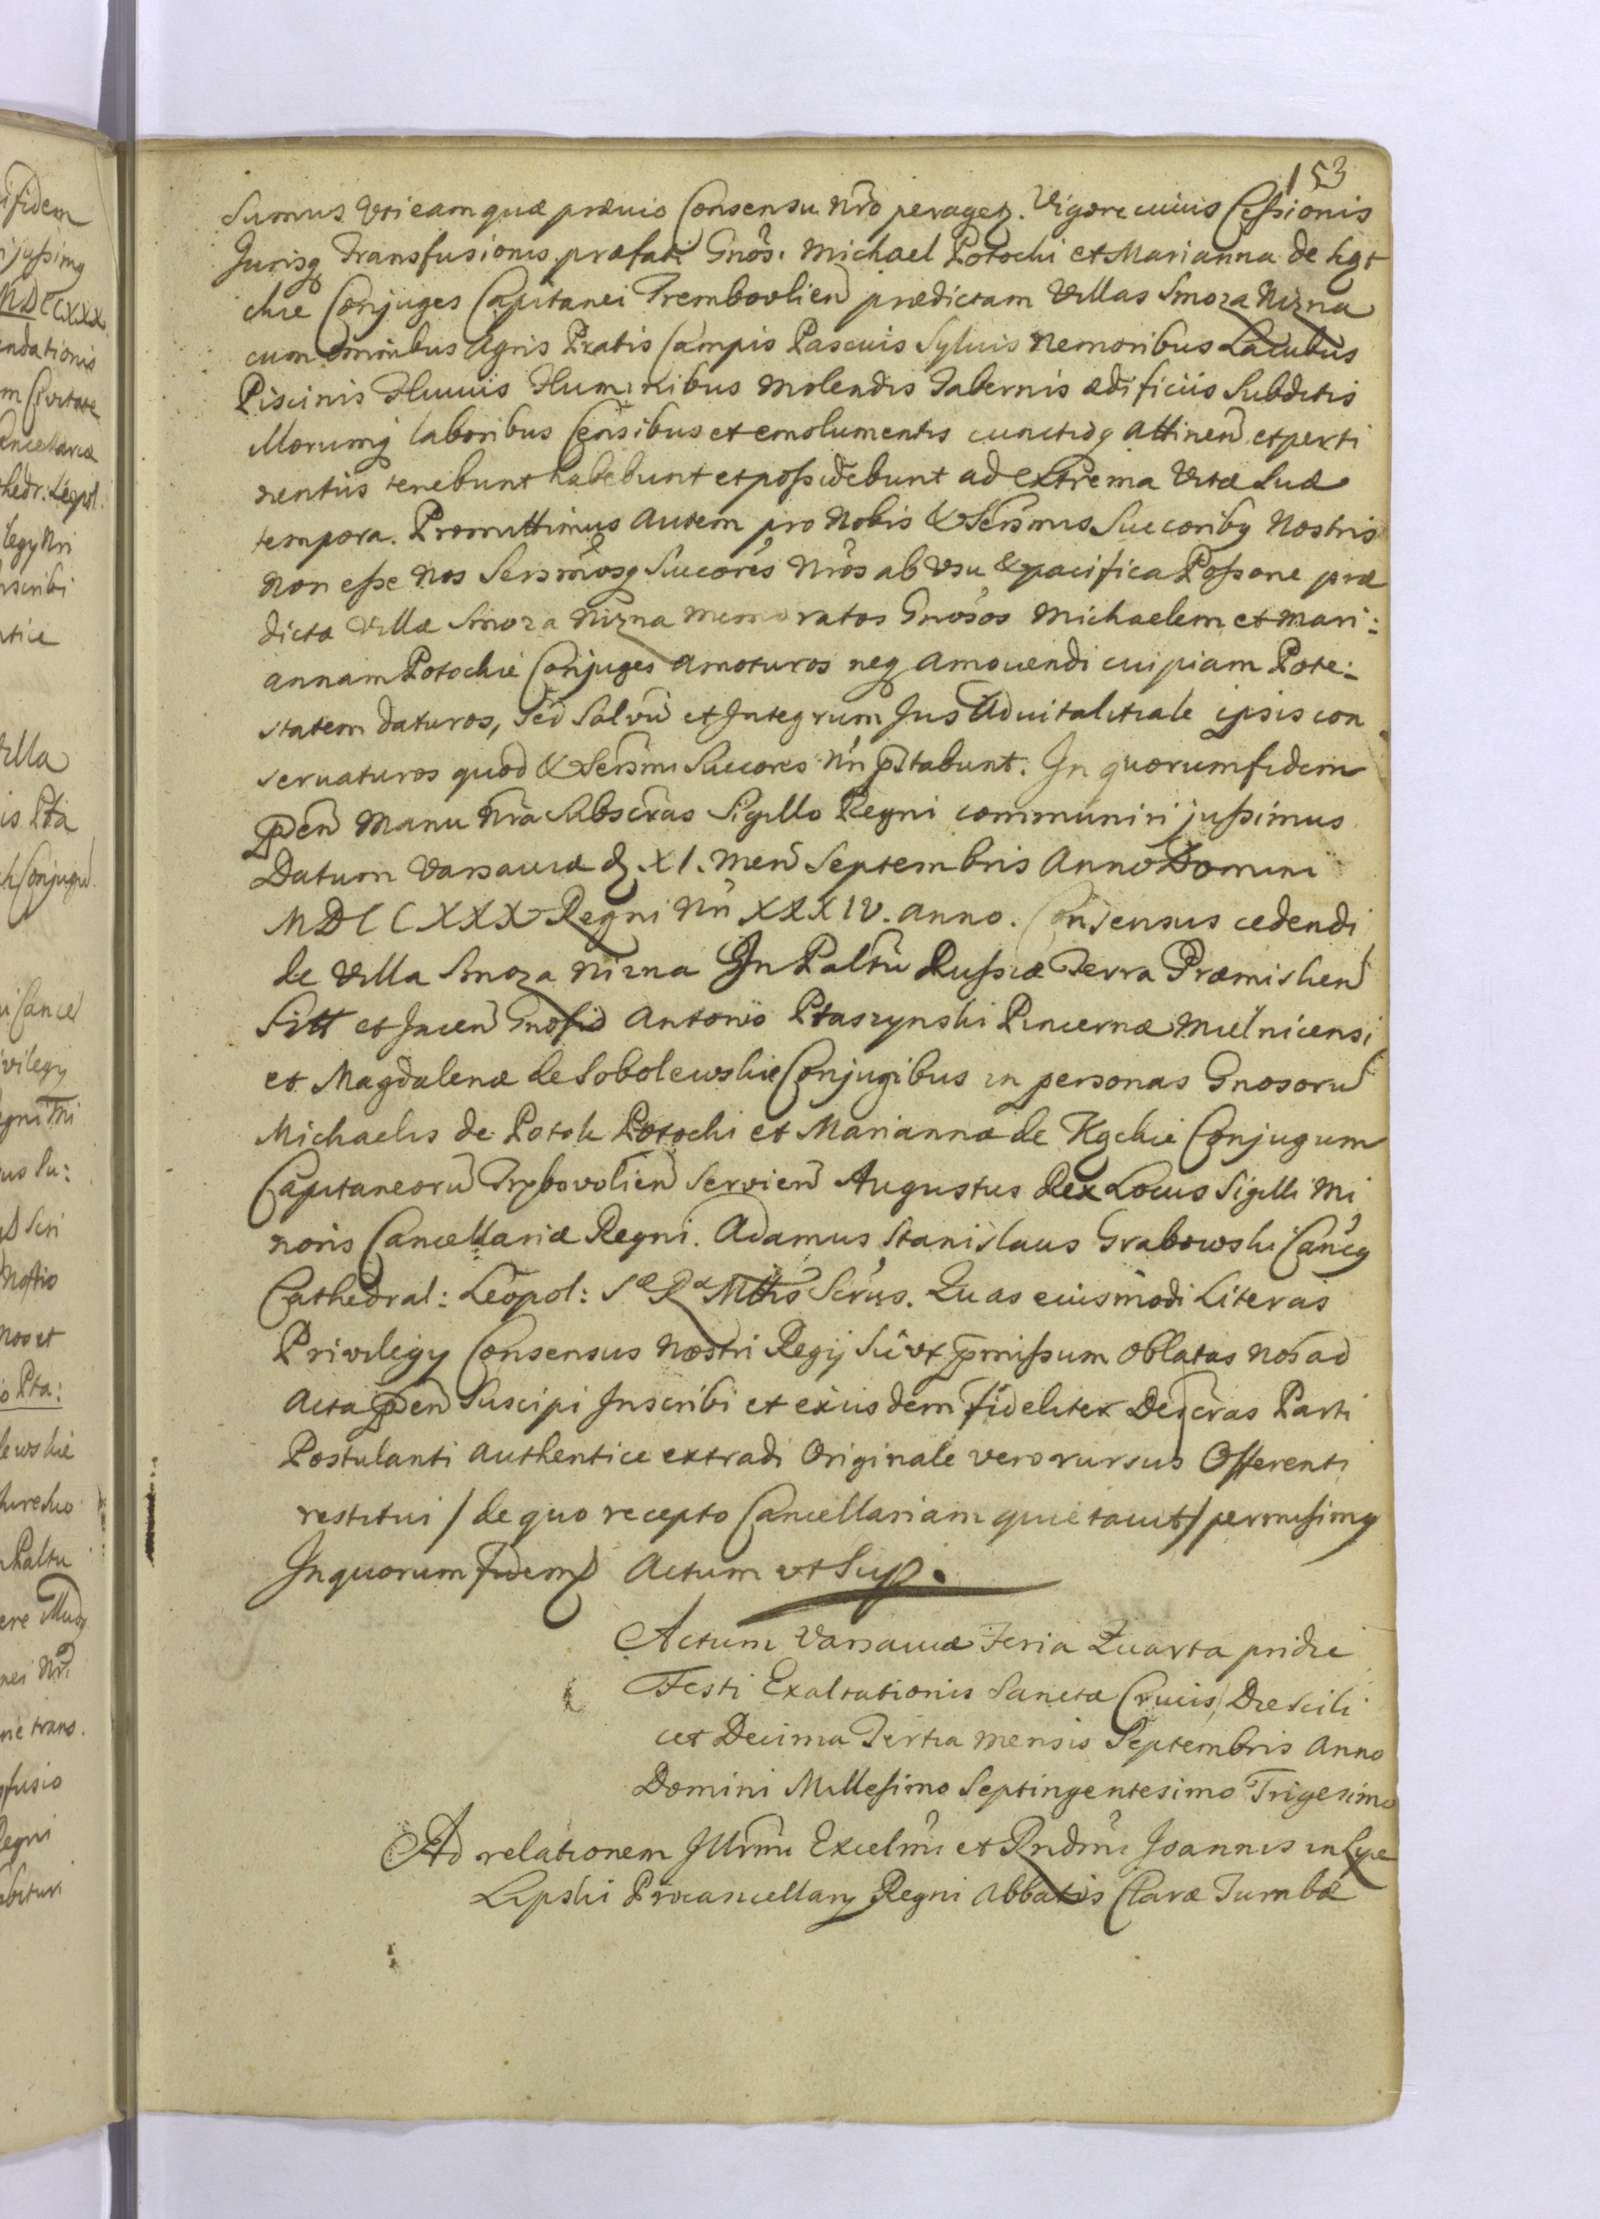 153
sumus uti eamquæ prævio Consensu Nro peragetz. Vigore cuius Cessionis
Jurisq Transfusionis præfati Gnosi Michael Potocki et Marianna de Kąt
ckie Conjuges Capitanei Trembovlien prædictam Villas Smoza Nizna
cum omnibus Agris Pratis Campis Pascuis Sylvis Nemoribus Lacubus
Piscinis Fluviis Fluminibus Molendis Tabernis ædificiis Subditis
illorumq laboribus Censibus et emolumentis cunctisq attinen et perti
nentiis tenebunt habebunt et possidebunt ad extrema Vitæ Suæ
tempora. Promittimus autem pro Nobis & Serenmis Succoribq Nostris
Non esse Nos Serenmosq Succores Nros ab Usu & pacifica Possone præ
dictæ Villæ Smoza Nizna memoratos Gnosos Michaelem et Mari:
annam Potockie Conjuges amoturos neq amovendi cuipiam Pote:
statem daturos, sed Salvu et Integrum Jus Advitalitiale ipsis con
servaturos quod & Serenmi Succores Nri pstabunt. In quorum fidem
Pden Manu Nra Subscras Sigillo Regni communiri jussimus
Datum Varsaviæ d. XI. Men Septembris Anno Domini
MDCCXXX Regni Nri XXXIV. anno. Consensus cedendi
de Villa Smoza Nizna In Paltu Russiæ Terra Præmislien
Sitt et Jacen Gnosis Antonio Ptaszynski Pincernæ Mielnicensi
et Magdalenæ de Sobolewskie Conjugibus in personas Gnosoru
Michaelis de Potok Potocki et Mariannæ de Kąckie Conjugum
Capitaneoru Trybovolien Servien Augustus Rex Locus Sigilli Mi
noris Cancellariæ Regni. Adamus Stanislaus Grabowski Cancq
Cathedral: Leopol: Sæ Ræ Mttis Scrus. Quas eiusmodi Literas
Privilegy Consensus Nostri Regij Sic ut pmissum oblatas Nos ad
Acta Pden Suscipi Inscribi et exinde fideliter Descras Parti
Postulanti Authentice extradi Originale vero rursus Offerenti
restitui / de quo recepto Cancellariam quietavit / permisimq
In quorum fidem Actum ut Sup.
Actum Varsaviæ Feria Quarta pridie
Festi Exaltationis Sanctæ Crucis, Die scili
cet Decima Tertia Mensis Septembris Anno
Domini Millesimo Septingentesimo Trigesimo
Ad relationem Illmi Excelmi et Rndmi Joannis in Lipe
Lipski Procancellarij Regni Abbatis Claræ Tumbæ